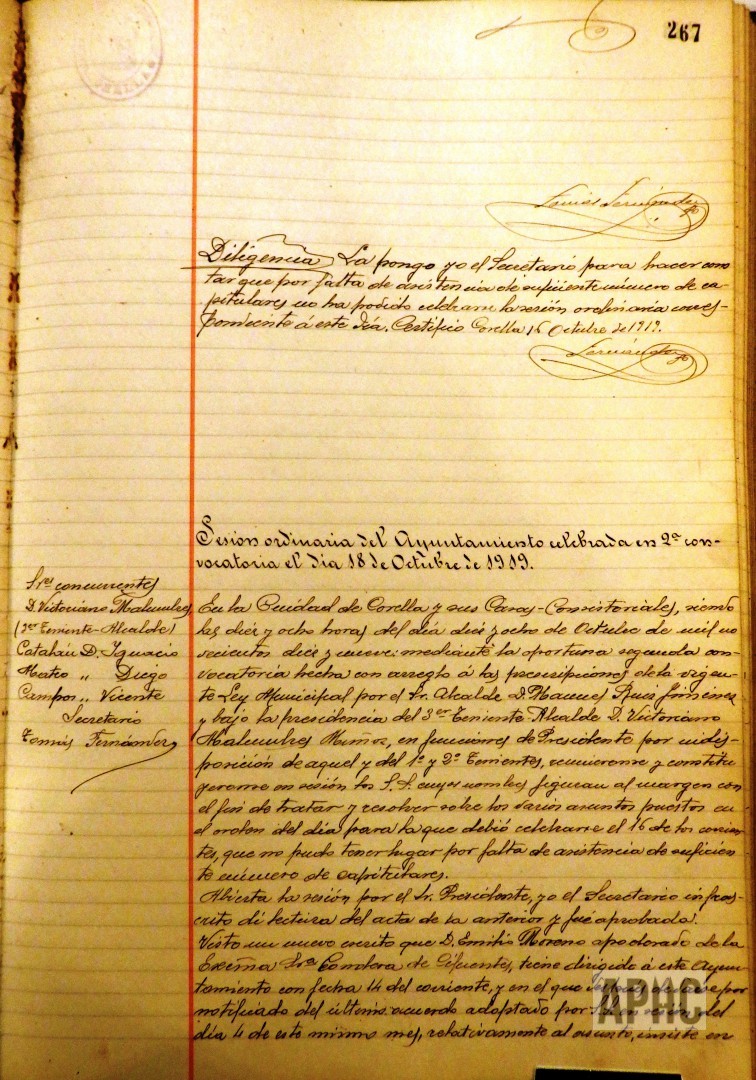 267
Tomás Fernández
Diligencia La pongo yo el Secretario para hacer cons
tar que por falta de asistencia de suficiente número de ca-
pitulares no ha podido celebrarse la sesión ordinaria corres-
pondiente á este día. Certifico Corella 16 Octubre de 1919.
Fernández
Sesión ordinaria del Ayuntamiento celebrada en 2ª con-
vocatoria el día 18 de Octubre de 1919.
Sres concurrentes
D. Victoriano Malumbres
(3er Teniente-Alcalde)
Catalán D. Ignacio
Mateo „ Diego
Campos „ Vicente
Secretario
Tomás Fernández
En la Ciudad de Corella y sus Casas-Consistoriales, siendo
las diez y ocho horas del día diez y ocho de Octubre de mil no
vecientos diez y nueve mediante la oportuna segunda con-
vocatoria hecha con arreglo á las prescripciones de la vigen-
te Ley Municipal por el Sr. Alcalde D. Manuel
y bajo la presidencia del 3er Teniente-Alcalde D. Victoriano
Malumbres Muñoz, en funciones de Presidente por indis-
posición de aquel y del 1º y 2º Tenientes, reunieronse y constitu
yeronse en sesión los S.S. cuyos nombres figuran al margen con
el fin de tratar y resolver sobre los varios asuntos puestos en
el orden del día para la que debió celebrarse el 16 de los corrien-
tes, que no pudo tener lugar por falta de asistencia de suficien
te número de capitulares.
Abierta la sesión por el Sr. Presidente, yo el Secretario infras-
crito di lectura del acta de la anterior y fué aprobada.
Visto un nuevo escrito que D. Emilio Moreno apoderado de la
Excma Sra Condesa de Cifuentes, tiene dirigido á este Ayun-
tamiento con fecha 14 del corriente, y en el que por
notificado del último acuerdo adoptado por del
día 4 de este mismo mes, relativamente al asunto, insiste en
APHC